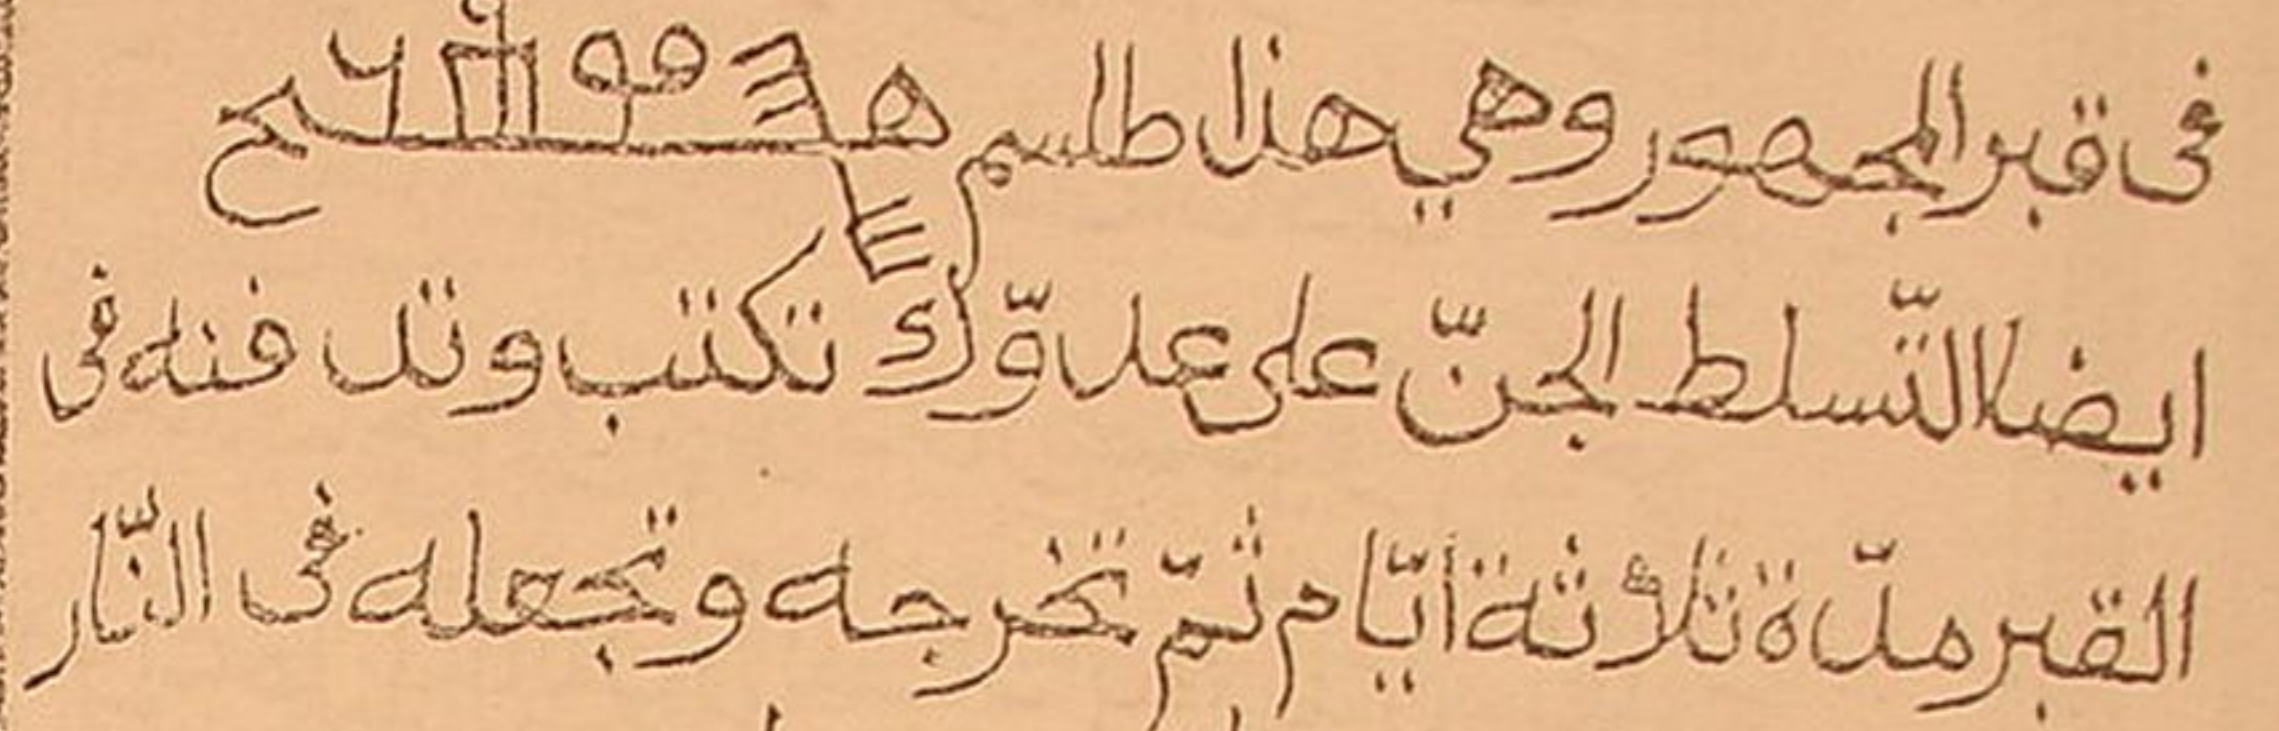 في قبر المجهور وهي هذا طلسم
ايضا التّسلط الجنّ على عدوّك تكتب وتد فنه في
القبر مدّة ثلاثة أيّام ثمّ تخرجه وتجعله في النّار